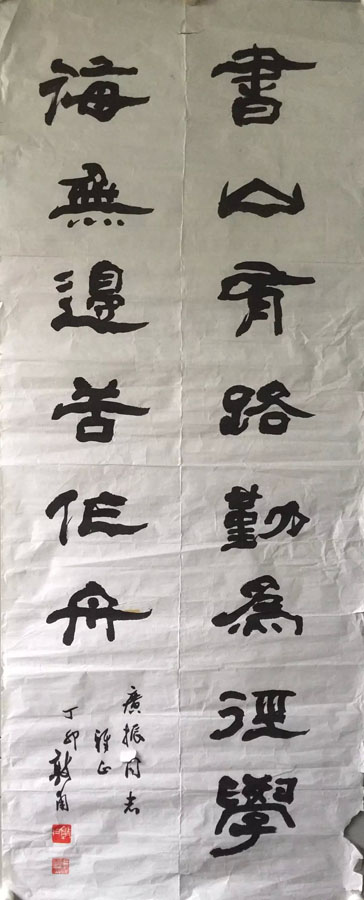 書山有路勤為徑學
海無邊苦作舟
廣振同志
雅正
丁卯